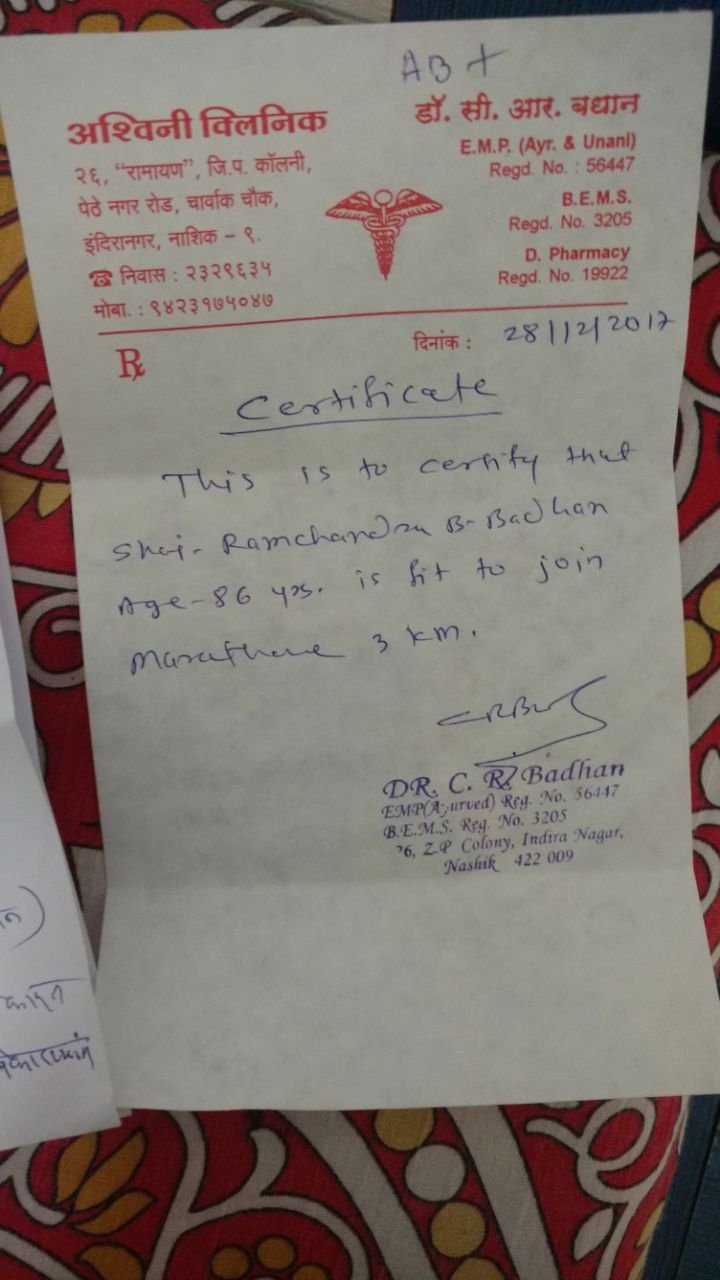 AB +
अश्विनी क्लिनिक
२६, “रामायण”, जि.प. कॉलनी,
पेठे नगर रोड, चार्वाक चौक,
इंदिरानगर, नाशिक – ९.
☎ निवास : २३२९६३५
मोबा. : ९४२३१७५०४७
डॉ. सी. आर. बधान
E.M.P. (Ayr. & Unani)
Regd. No. : 56447
B.E.M.S.
Regd. No. 3205
D. Pharmacy
Regd. No. 19922
℞
दिनांक : 28/12/2017
Certificate
This is to certify that
Shri. Ramchandra B. Badhan
Age-86 yrs. is fit to join
Marathone 3 km.
DR. C. R. Badhan
EMP(Ayurved) Reg. No. 56447
B.E.M.S. Reg. No. 3205
26, Z.P Colony, Indira Nagar,
Nashik 422 009